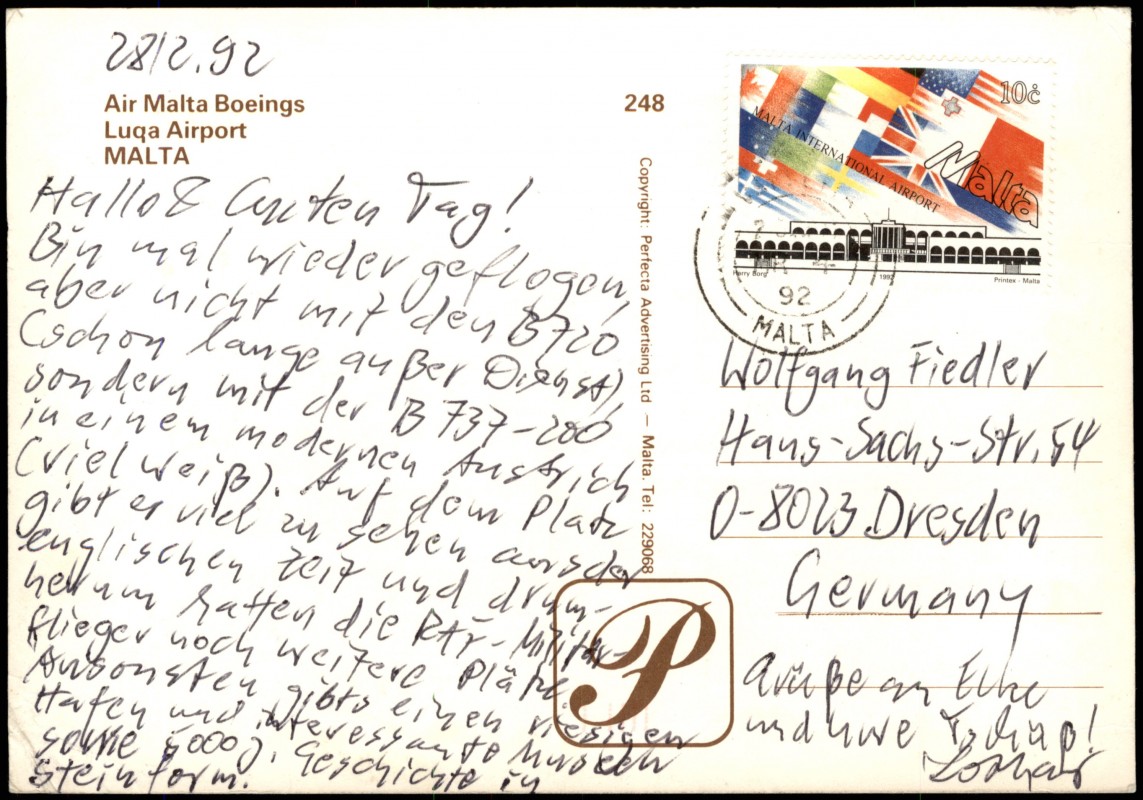 28/2.92
Air Malta Boeings
Luqa Airport
MALTA
248
Hallo & Guten Tag!
Bin mal wieder geflogen,
aber nicht mit den B720
(schon lange außer Dienst),
sondern mit der B 737-200
in einem modernen Anstrich
(viel weiß). Auf dem Platz
gibt es viel zu sehen aus der
englischen Zeit und drum-
herum hatten die RAF-Militär-
flieger noch weitere Plätze.
Ansonsten gibts einen riesigen
Hafen und interessante Museen
sowie 5000 J. Geschichte in
Steinform.
Copyright: Perfecta Advertising Ltd — Malta. Tel: 229068
P
10c
MALTA INTERNATIONAL AIRPORT
Malta
Harry Borg
1992
Printex - Malta
92
MALTA
Wolfgang Fiedler
Hans-Sachs-Str. 54
O-8023 Dresden
Germany
Grüße an Elke
und Uwe
Lothar